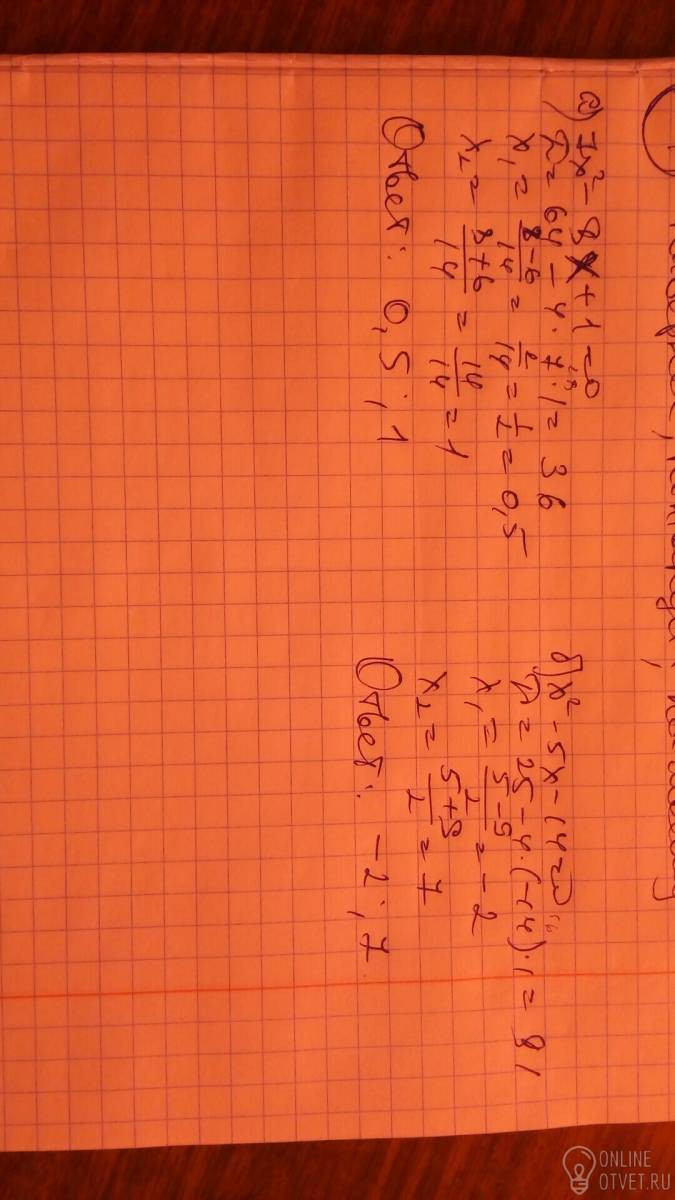 а) 7x² - 8x + 1 = 0
D = 64 - 4 · 7 · 1 = 36
x₁ = (8-6)/14 = 2/14 = 1/2 = 0,5
x₂ = (8+6)/14 = 14/14 = 1
Ответ: 0,5; 1
б) x² - 5x - 14 = 0
D = 25 - 4 · (-14) · 1 = 81
x₁ = (5-9)/2 = -2
x₂ = (5+9)/2 = 7
Ответ: -2; 7.
ONLINE
OTVET.RU